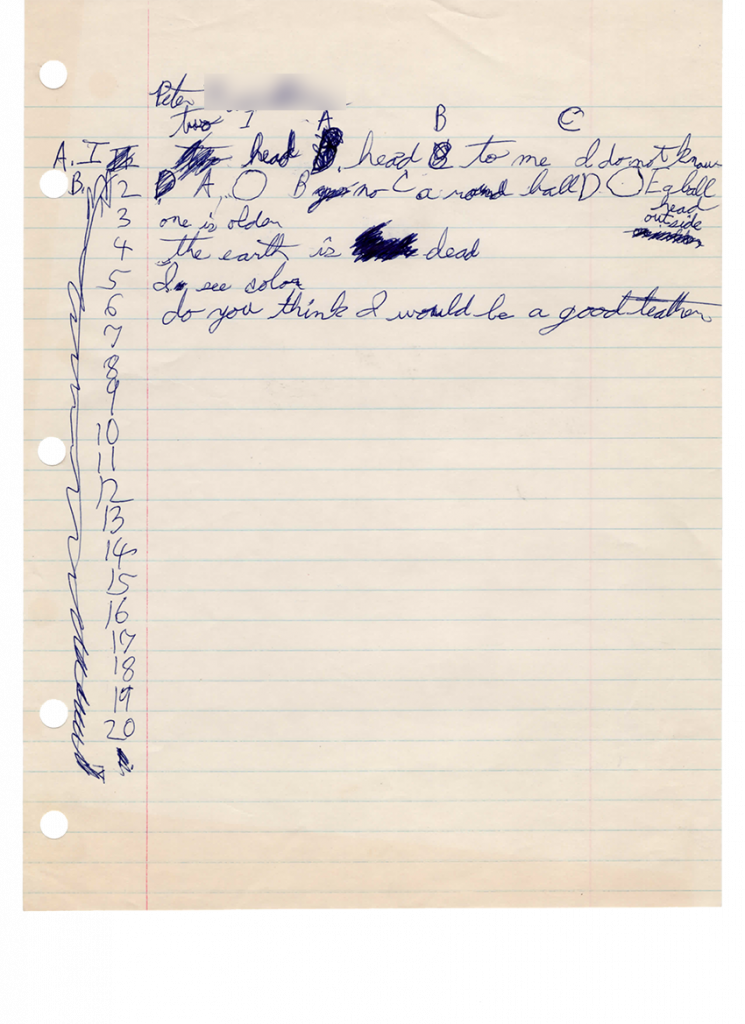 Peter
two I A B C
A. I head head to me I do not know
B. 2 A. O B no C a round ball D O E a ball
head
outside
3 one is older
4 the earth is dead
5 I see color
6 do you think I would be a good teather
7
8
9
10
11
12
13
14
15
16
17
18
19
20